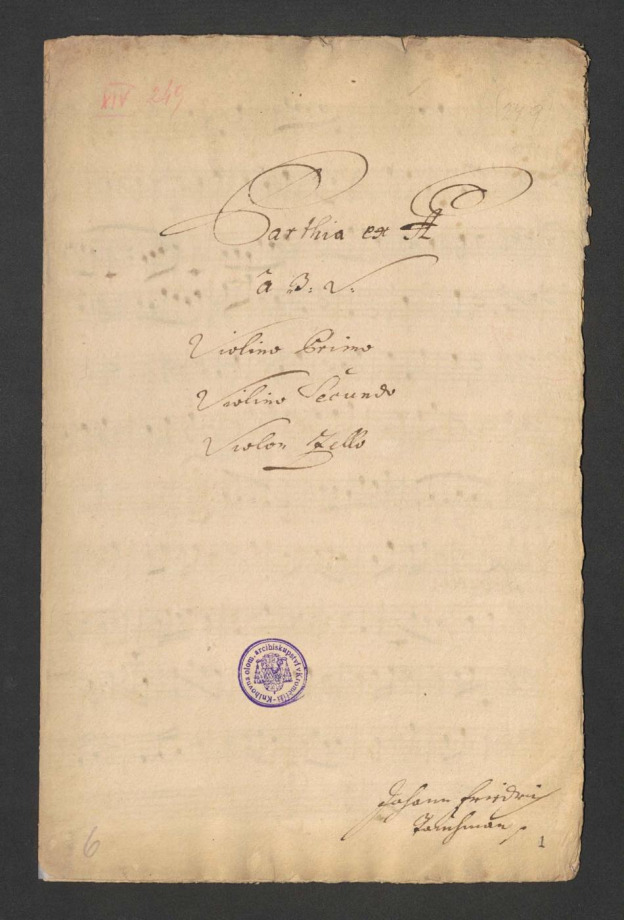 XIV 249
249
Parthia ex A
â 3. V.
Violino Primo
Violino Secundo
Violon Zello
Knihovna olom. arcibiskupství v Kroměříži
Johann Friedrich
6
1